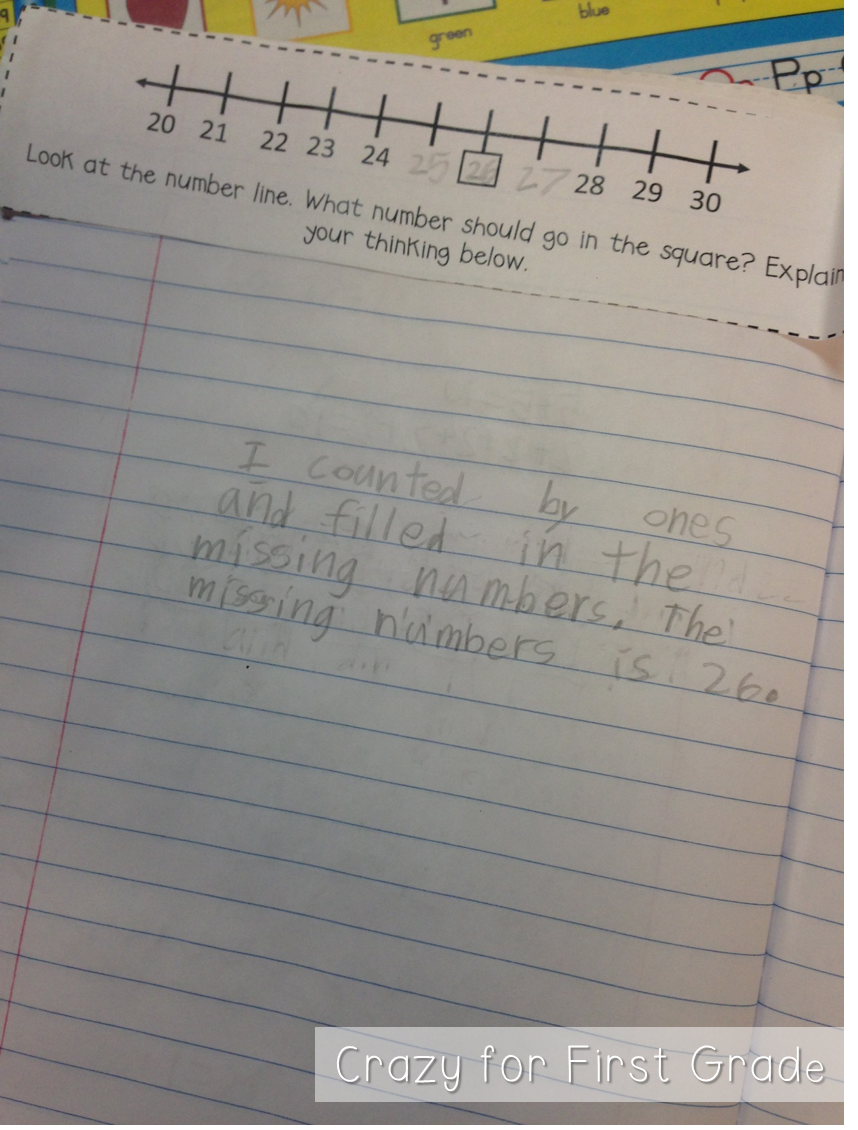 green
blue
Pp
20 21 22 23 24 25 26 27 28 29 30
Look at the number line. What number should go in the square? Explain
your thinking below.
I counted by ones
and filled in the
missing numbers. The
missing numbers is 26.
Crazy for First Grade